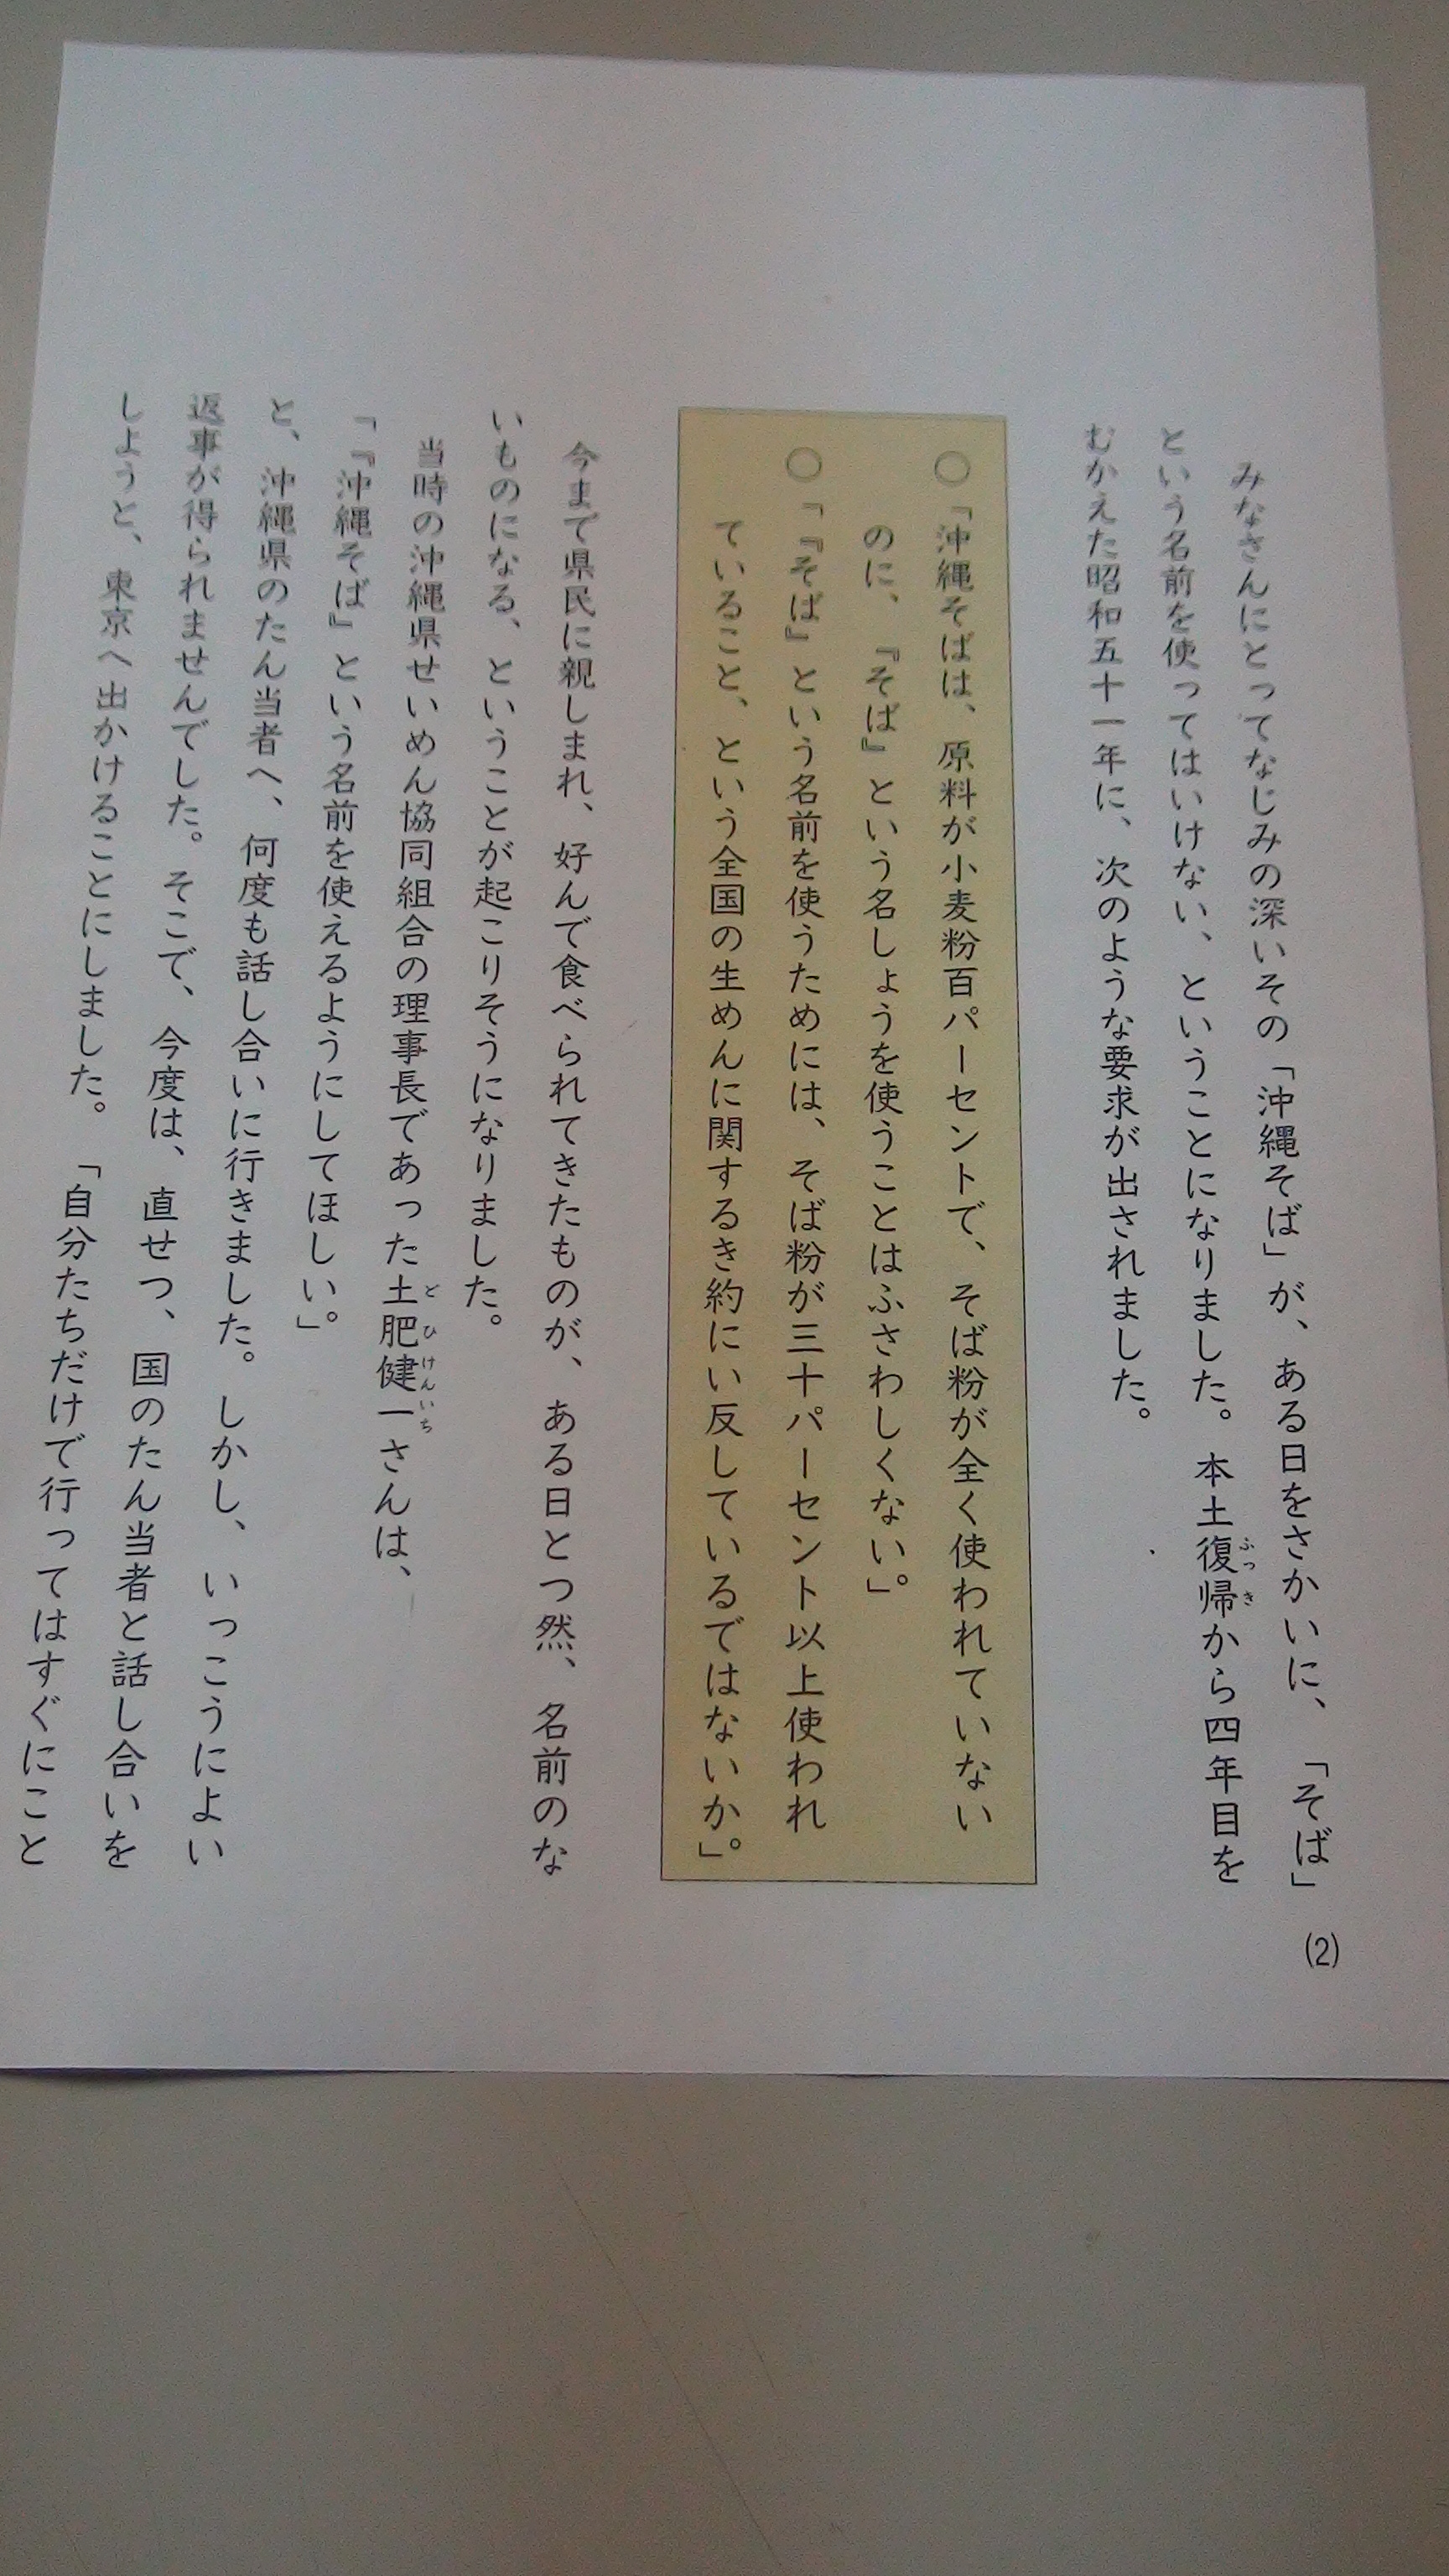 みなさんにとってなじみの深いその「沖縄そば」が、ある日をさかいに、「そば」
という名前を使ってはいけない、ということになりました。本土復帰から四年目を
むかえた昭和五十一年に、次のような要求が出されました。
○「沖縄そばは、原料が小麦粉百パーセントで、そば粉が全く使われていない
のに、『そば』という名しょうを使うことはふさわしくない。」
○「『そば』という名前を使うためには、そば粉が三十パーセント以上使われ
ていること、という全国の生めんに関するき約にい反しているではないか。」
今まで県民に親しまれ、好んで食べられてきたものが、ある日とつ然、名前のな
いものになる、ということが起こりそうになりました。
当時の沖縄県せいめん協同組合の理事長であった土肥健一さんは、
「『沖縄そば』という名前を使えるようにしてほしい。」
と、沖縄県のたん当者へ、何度も話し合いに行きました。しかし、いっこうによい
返事が得られませんでした。そこで、今度は、直せつ、国のたん当者と話し合いを
しようと、東京へ出かけることにしました。「自分たちだけで行ってはすぐにこと
(2)
ふっき
どひけんいち